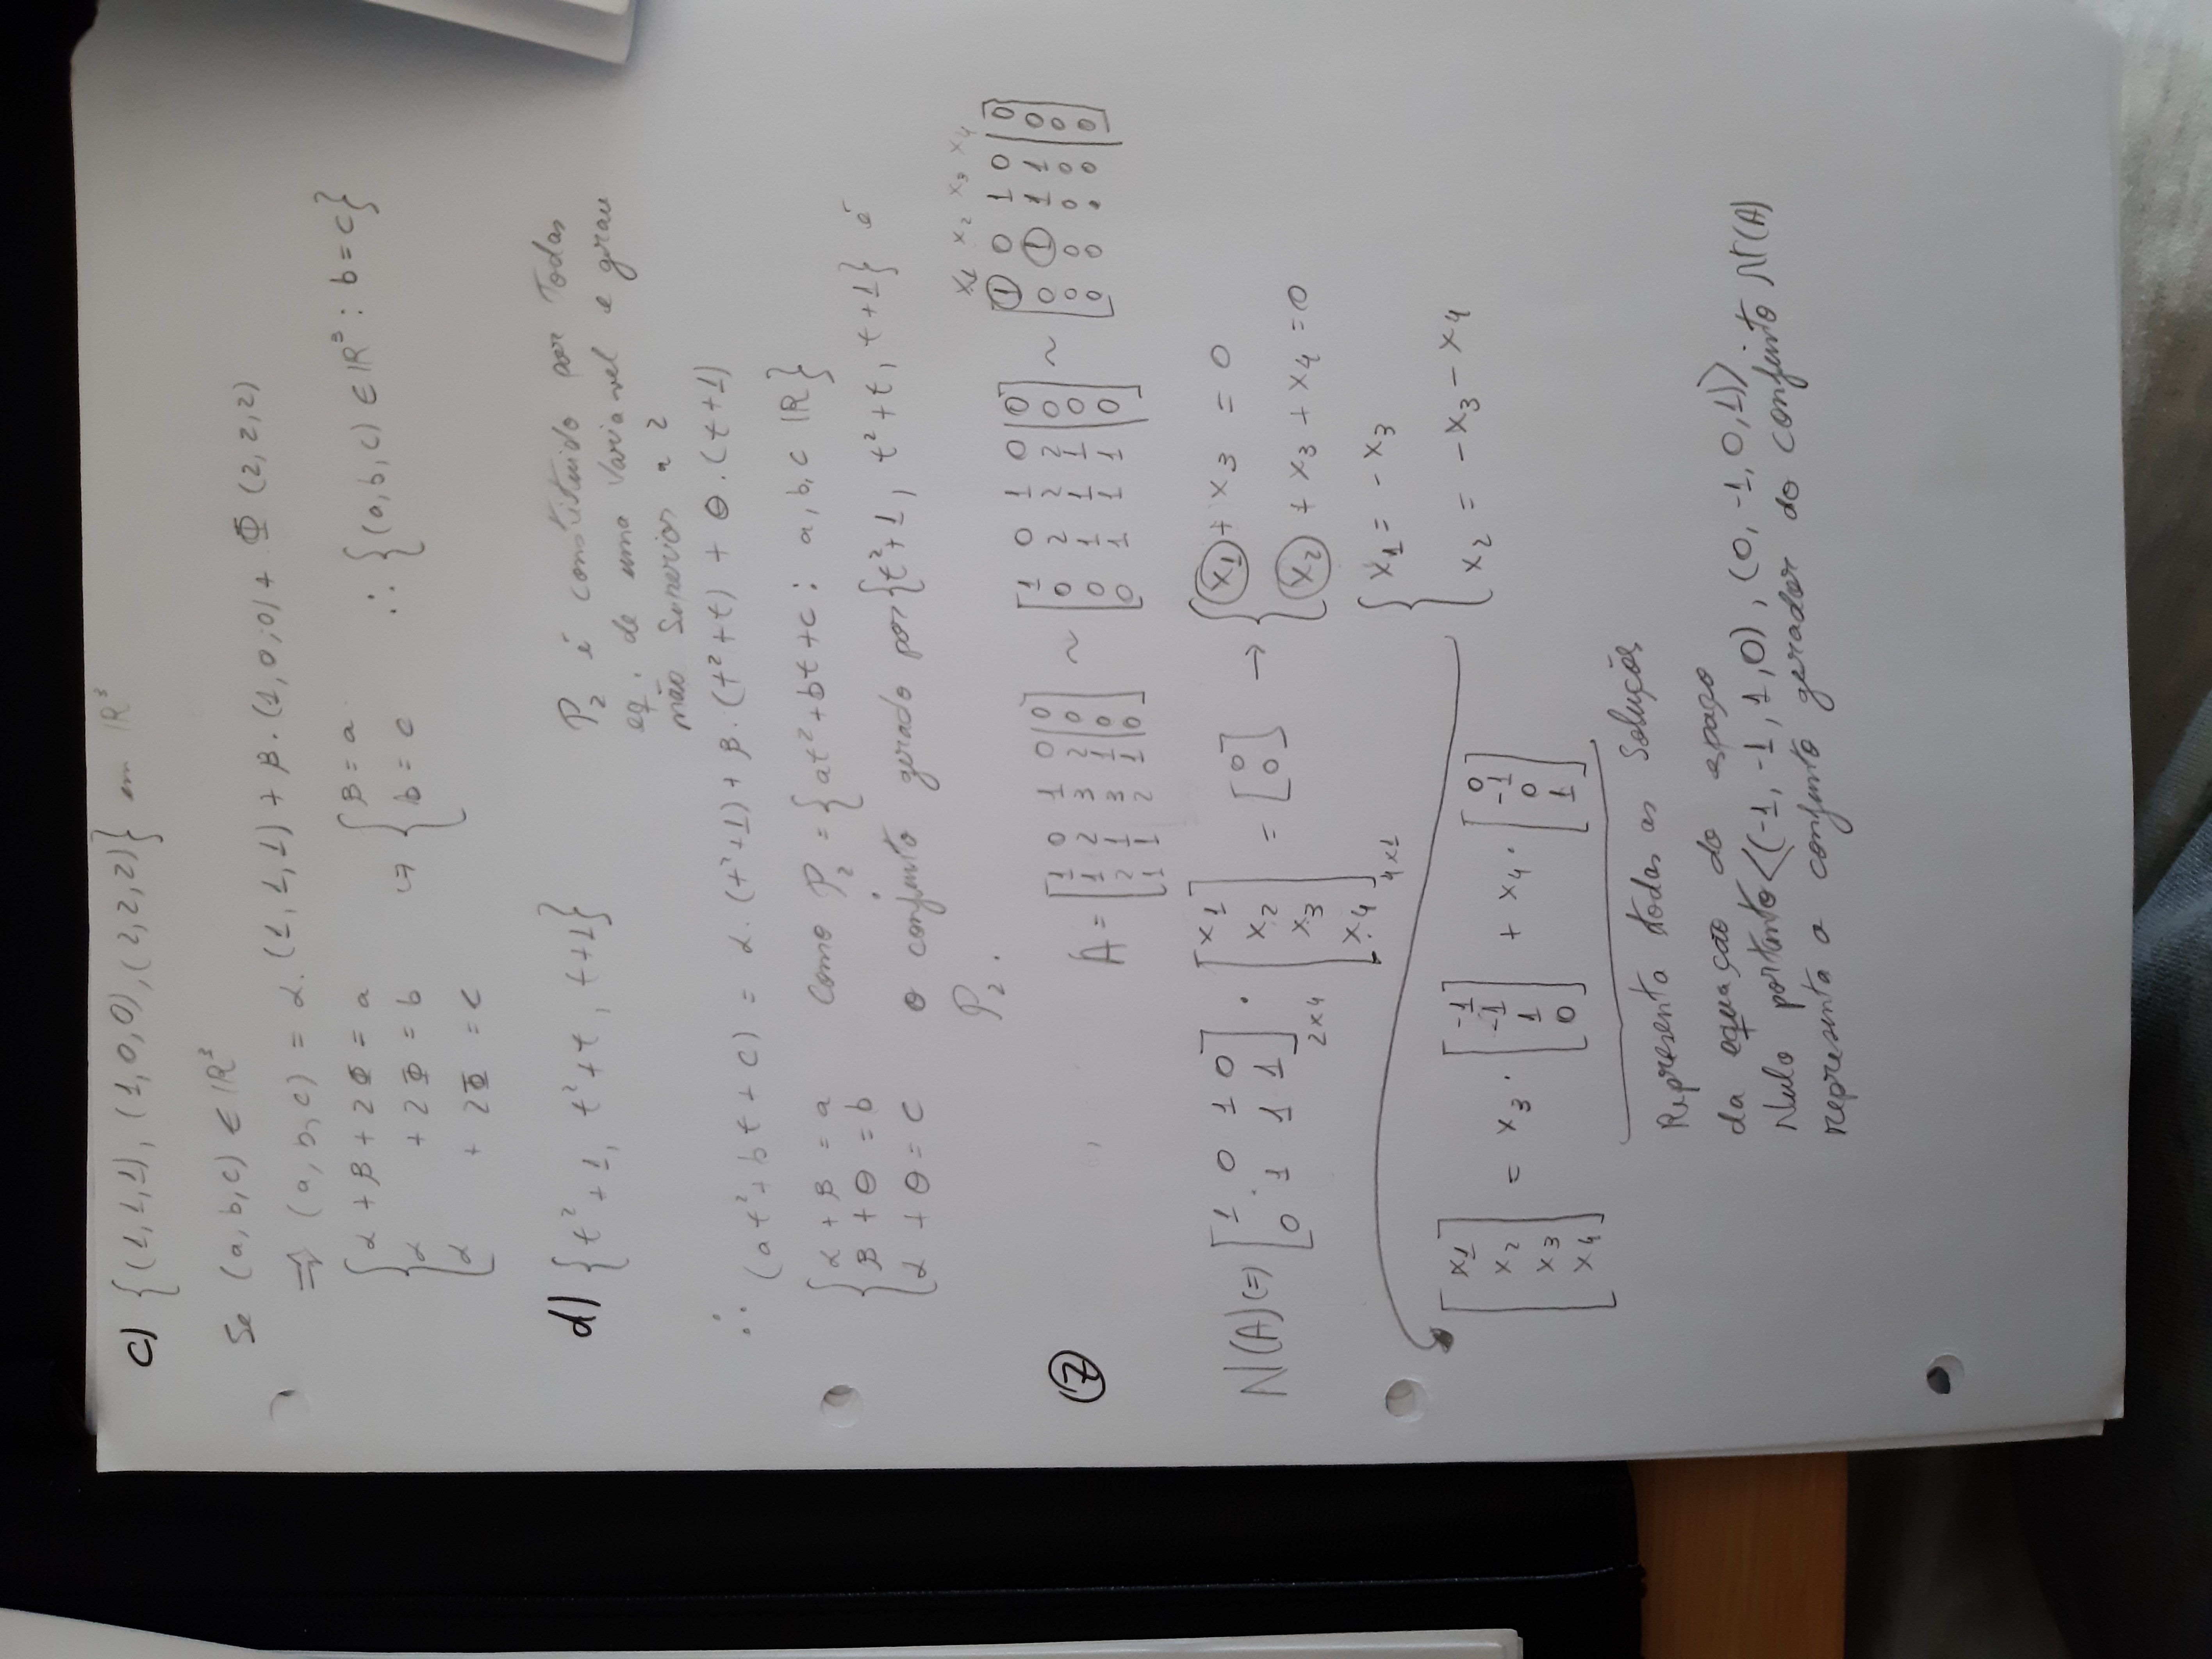 c) {(1,1,1), (1,0,0), (2,2,2)} em IR³
Se (a,b,c) ∈ IR³
⇒ (a,b,c) = α.(1,1,1) + β.(1,0,0) + Φ (2,2,2)
{ α + β + 2Φ = a
α + 2Φ = b
α + 2Φ = c
↪ { β = a
b = c
∴ {(a,b,c) ∈ IR³ : b = c}
d) {t²+1, t²+t, t+1}
P₂ é constituido por Todas
eq. de uma Variavel e grau
não Superior a 2
∴ (at²+bt+c) = α.(t²+1) + β.(t²+t) + θ.(t+1)
{ α + β = a
β + θ = b
α + θ = c
Como P₂ = {at²+bt+c : a,b,c IR}
o conjunto gerado por {t²+1, t²+t, t+1} é
P₂.
x₁ x₂ x₃ x₄
⑦
A = [1 0 1 0 | 0
1 2 3 2 | 0
2 1 3 1 | 0
1 1 2 1 | 0]
~ [1 0 1 0 | 0
0 2 2 2 | 0
0 1 1 1 | 0
0 1 1 1 | 0]
~ [① 0 1 0 | 0
0 ① 1 1 | 0
0 0 0 0 | 0
0 0 0 0 | 0]
N(A) (=) [1 0 1 0
0 1 1 1] 2x4
. [x₁
x₂
x₃
x₄] 4x1
= [0
0]
→ { x₁ + x₃ = 0
x₂ + x₃ + x₄ = 0
{ x₁ = - x₃
x₂ = - x₃ - x₄
[x₁
x₂
x₃
x₄]
= x₃ . [-1
-1
1
0]
+ x₄ . [0
-1
0
1]
Representa todas as Soluções
da equação do espaço
Nulo portanto <(-1,-1,1,0), (0,-1,0,1)>
representa o conjunto gerador do conjunto N(A)